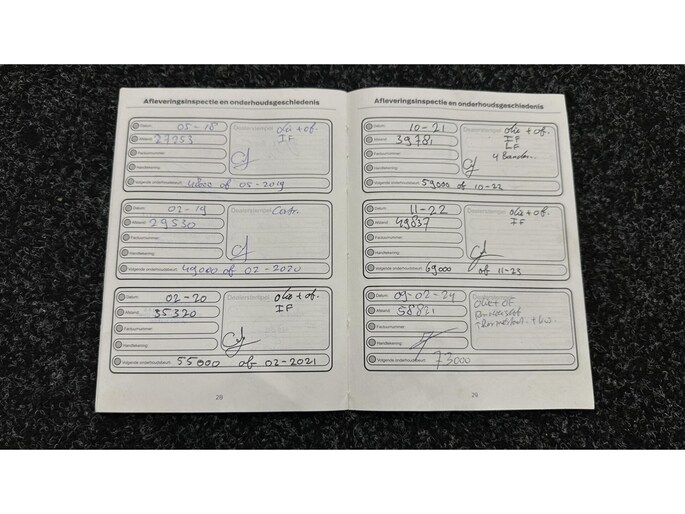 Afleveringsinspectie en onderhoudsgeschiedenis
Datum: 05-18
Dealerstempel
olie + of.
IF
Afstand: 27253
Factuurnummer:
Handtekening:
Volgende onderhoudsbeurt: 48000 of 05-2019
Datum: 02-19
Dealerstempel
Contr.
Afstand: 29530
Factuurnummer:
Handtekening:
Volgende onderhoudsbeurt: 49000 of 02-2020
Datum: 02-20
Dealerstempel
olie + of.
IF
Afstand: 35320
Factuurnummer:
Handtekening:
Volgende onderhoudsbeurt: 55000 of 02-2021
28
Afleveringsinspectie en onderhoudsgeschiedenis
Datum: 10-21
Dealerstempel
olie + of.
IF
LF
4 Banden.
Afstand: 39781
Factuurnummer:
Handtekening:
Volgende onderhoudsbeurt: 59000 of 10-22
Datum: 11-22
Dealerstempel
olie + of.
IF
Afstand: 49837
Factuurnummer:
Handtekening:
Volgende onderhoudsbeurt: 69000 of 11-23
Datum: 09-02-24
Dealerstempel
Afstand: 58821
Factuurnummer:
Handtekening:
Volgende onderhoudsbeurt: 73000
29